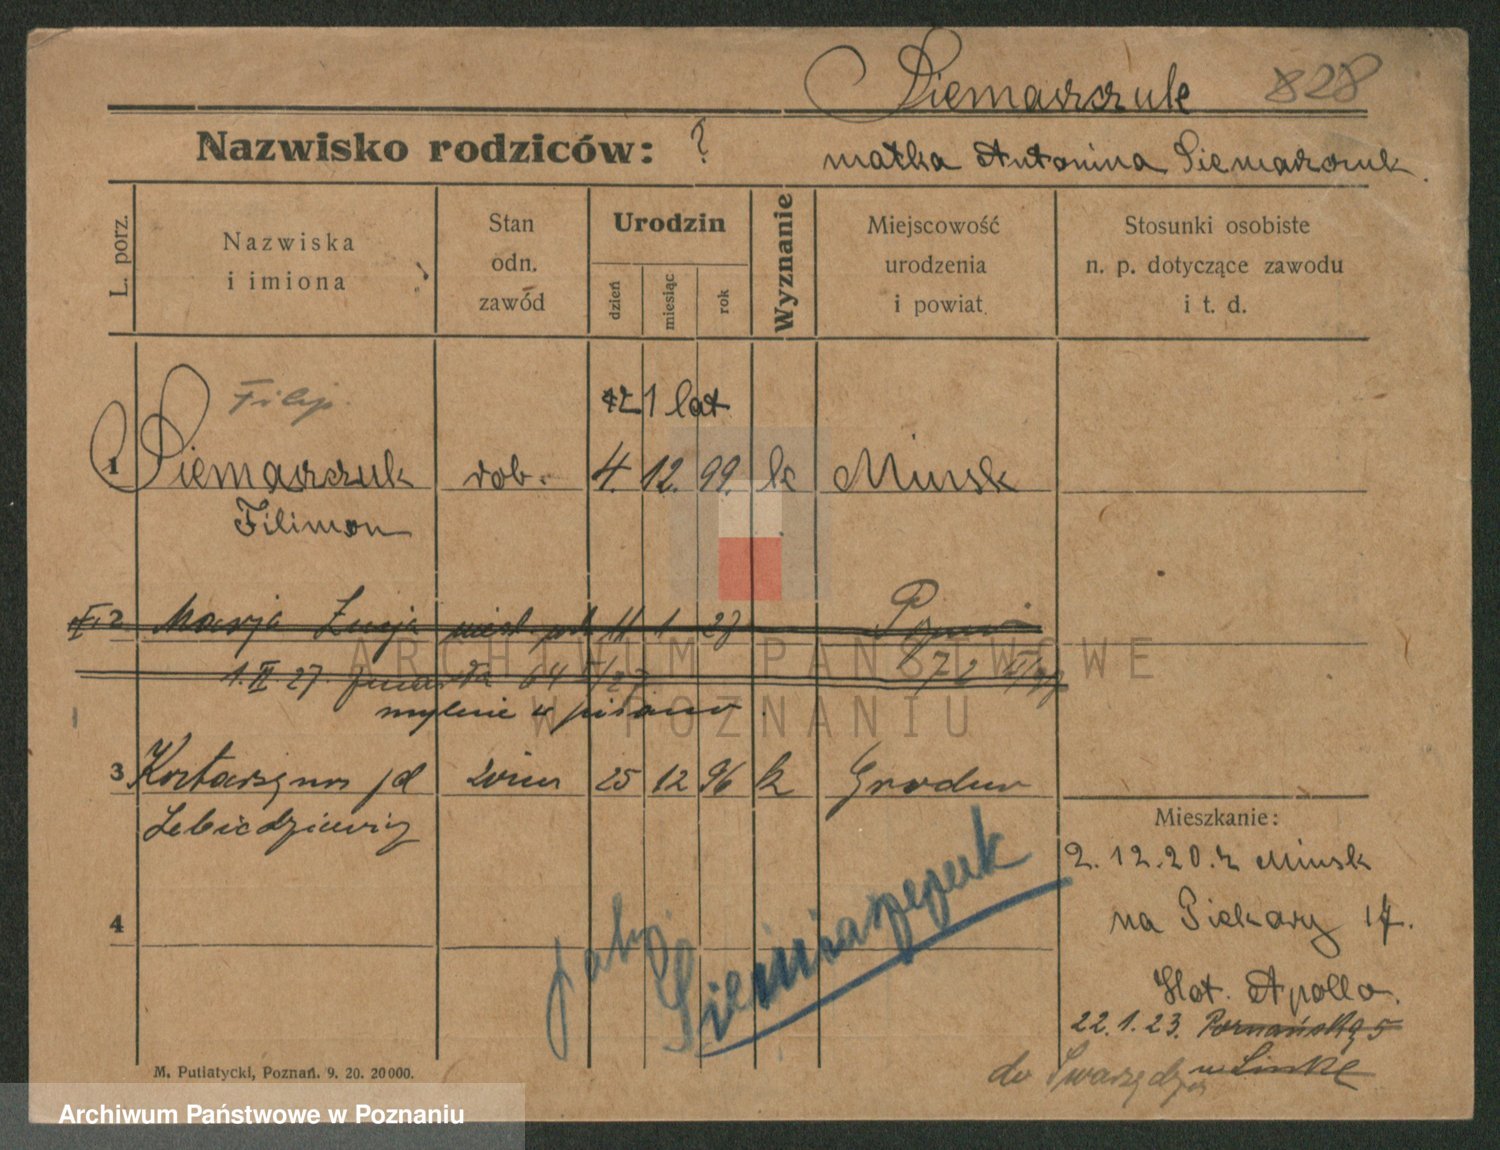 Siemarczuk 828
Nazwisko rodziców: ? matka Antonina Siemarczuk.
L. porz.
Nazwiska
i imiona
Stan
odn.
zawód
Urodzin
dzień
miesiąc
rok
Wyznanie
Miejscowość
urodzenia
i powiat
Stosunki osobiste
n. p. dotyczące zawodu
i t. d.
Filip. 21 lat
1 Siemarczuk rob. 4. 12. 99. k Minsk
Filimon
2 Marja 11 1 27
1. II 27. 64 72
mylnie w pisano.
3 25 12 96 k Grodno
Lebiedziewicz
Mieszkanie:
2.12.20. z Minsk
4 na Piekary 17.
jako Siemiaszczuk
Hot. Apollo.
22.1.23. Poznańska 5
do Swarzędza
M. Putiatycki, Poznań. 9. 20. 20000.
ARCHIWUM PAŃSTWOWE
W POZNANIU
Archiwum Państwowe w Poznaniu